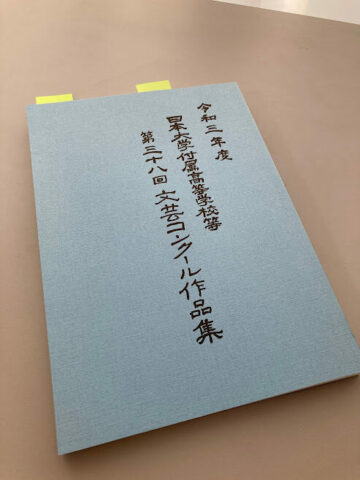 令和三年度
日本大学付属高等学校等
第三十八回 文芸コンクール作品集